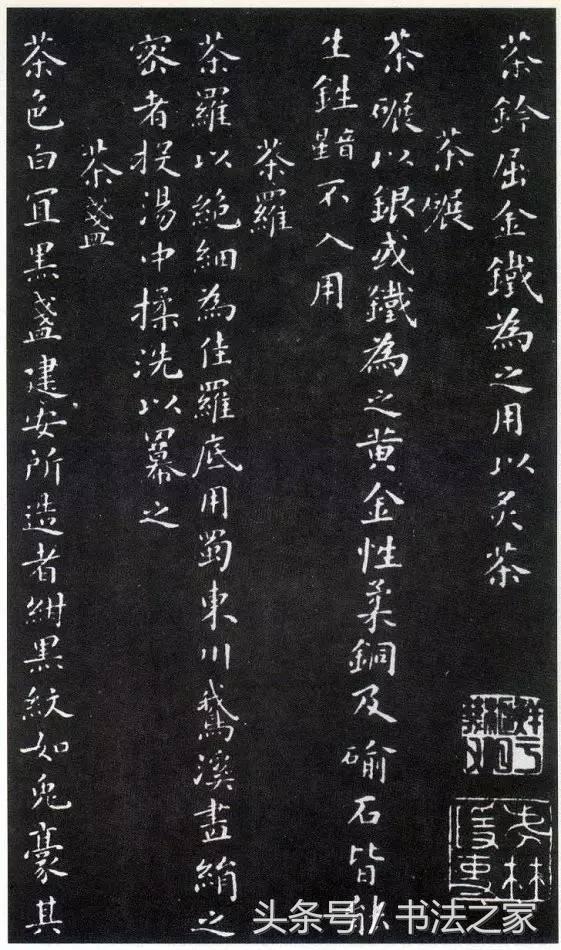 茶鈐屈金鐵為之用以炙茶
茶碾
茶碾以銀或鐵為之黃金性柔銅及石皆能
生鉎不入用
茶羅
茶羅以絕細為佳羅底用蜀東川鵝溪畫絹之
密者投湯中揉洗以羃之
茶盞
茶色白宜黑盞建安所造者紺黑紋如兔豪其
头条号/书法之家